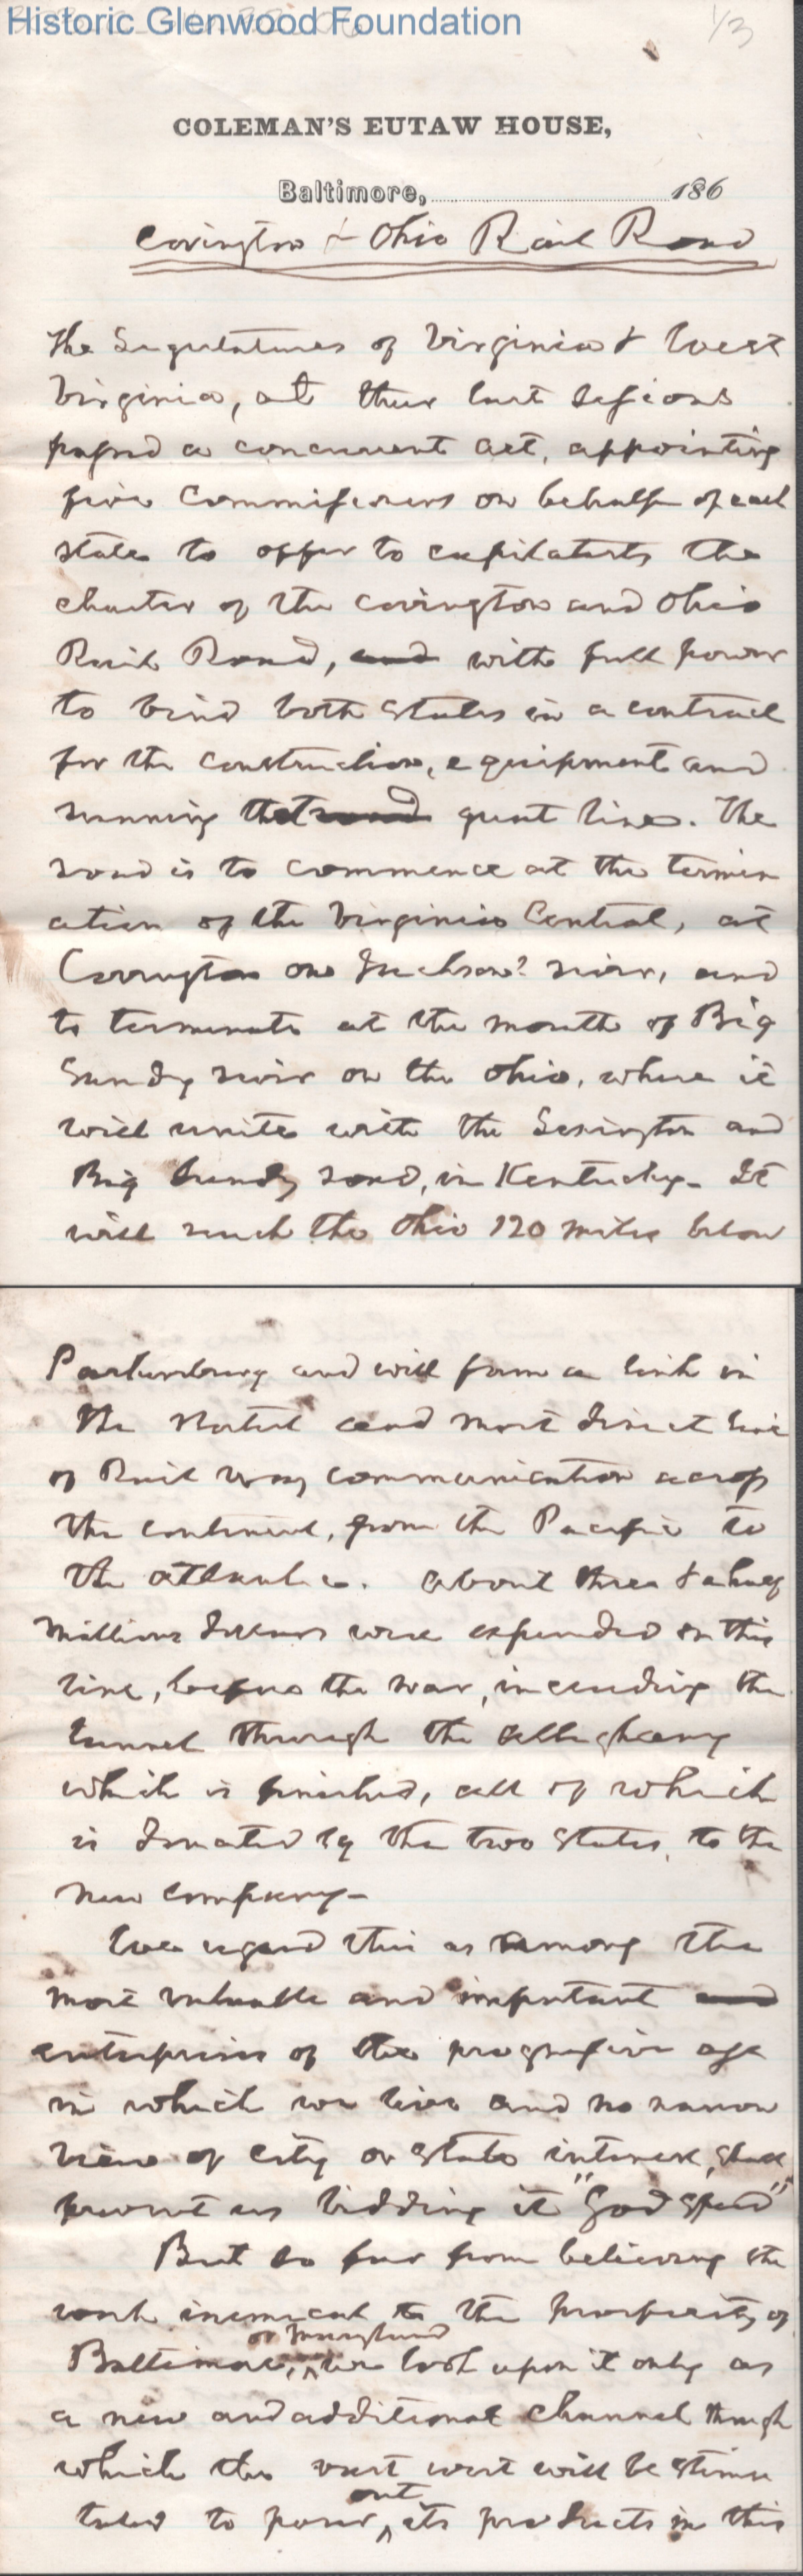 Historic Glenwood Foundation
1/3
COLEMAN'S EUTAW HOUSE,
Baltimore, 186
Covington & Ohio Rail Road
The Legislatures of Virginia & West
Virginia, at their last sessions
passed a concurrent act, appointing
five Commissioners on behalf of each
state to offer to capitalists the
charter of the Covington and Ohio
Rail Road, and with full power
to bind both States in a contract
for the construction, equipment and
running that road great line. The
road is to commence at the termin
ation of the Virginia Central, at
Covington on Jackson's river, and
to terminate at the mouth of Big
Sandy river on the Ohio, where it
will unite with the Lexington and
Big Sandy road, in Kentucky. It
will reach the Ohio 120 miles below
Parkersburg and will form a link in
the shortest and most direct line
of Rail way communication across
the continent, from the Pacific to
the Atlantic. About three & a half
millions dollars were expended on this
line, before the war, including the
tunnel through the Alleghany
which is finished, all of which
is donated by the two States, to the
new company-
We regard this as among the
most valuable and important and
enterprises of the progressive age
in which we live and no narrow
view of City or State interest, shall
prevent us bidding it "God speed"
But so far from believing the
work inimical to the prosperity of
or Maryland
Baltimore, we look upon it only as
a new and additional channel through
which the vast west will be stimu
out
lated to pour its products in this